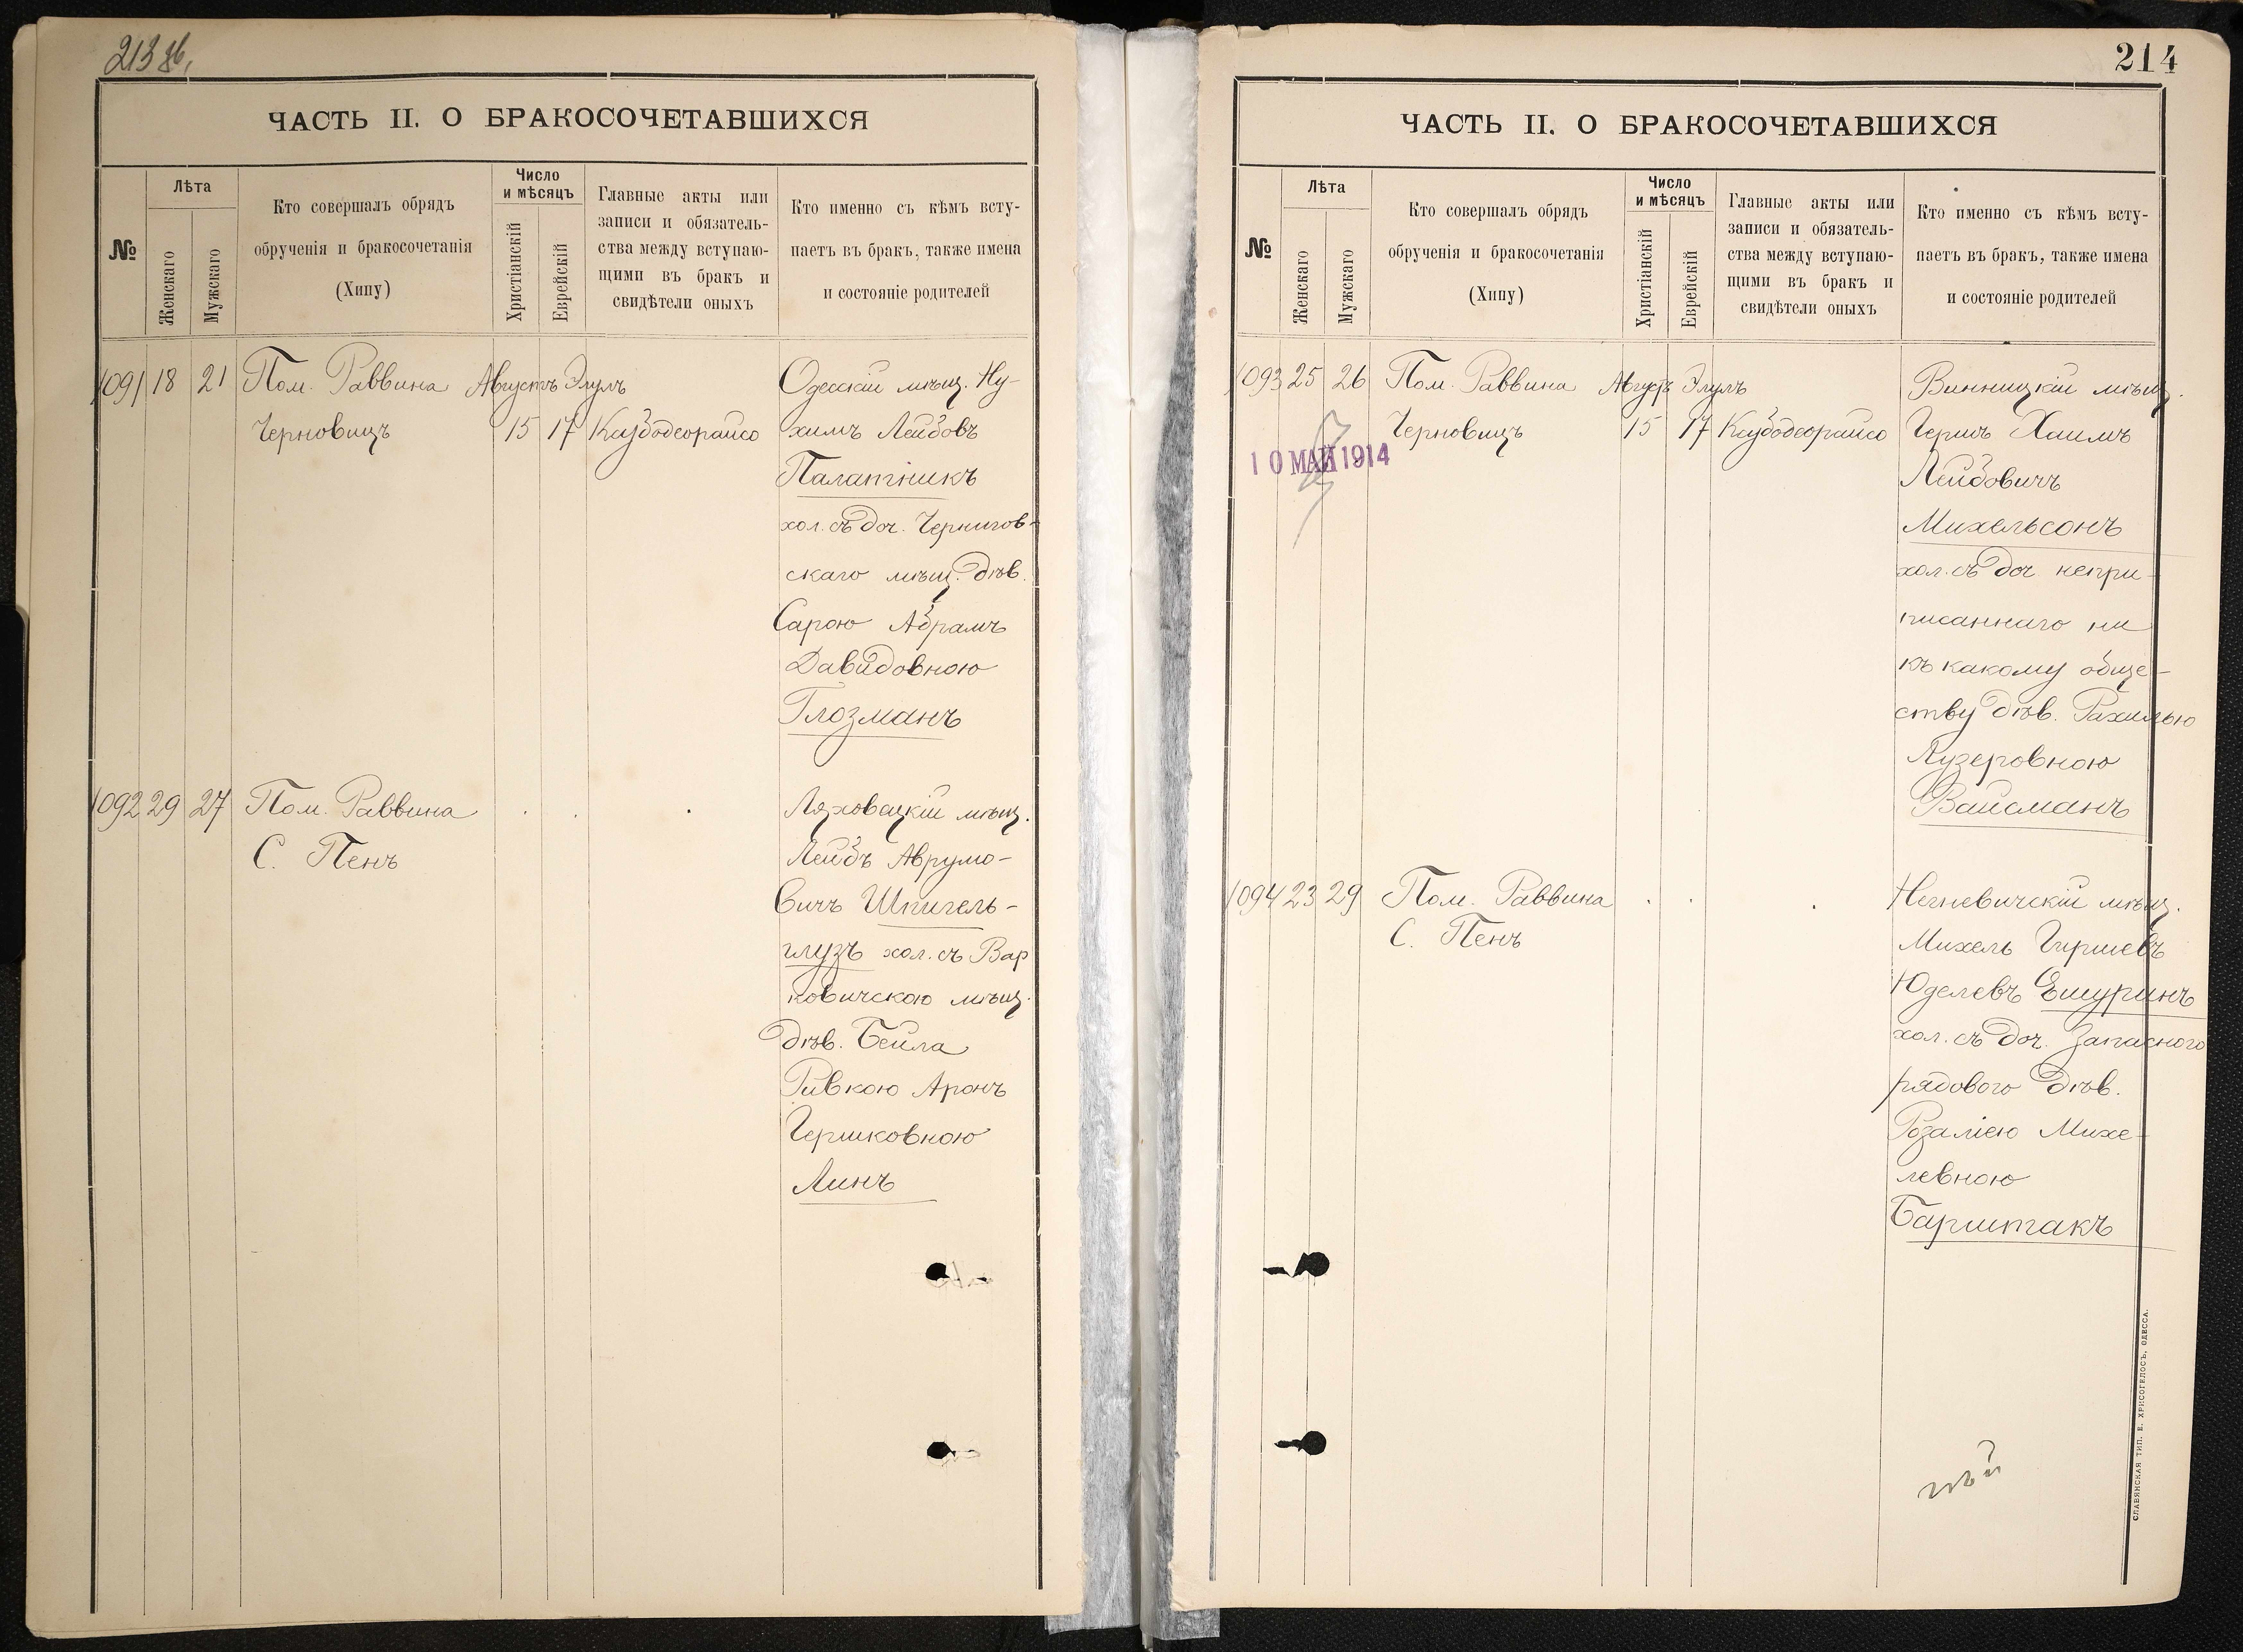 213 об.
ЧАСТЬ II. О БРАКОСОЧЕТАВШИХСЯ
№
Лѣта
Женскаго
Мужскаго
Кто совершалъ обрядъ
обрученія и бракосочетанія
(Хипу)
Число
и мѣсяцъ
Христіанскій
Еврейскій
Главные акты или
записи и обязатель-
ства между вступаю-
щими въ бракъ и
свидѣтели оныхъ
Кто именно съ кѣмъ всту-
паетъ въ бракъ, также имена
и состояніе родителей
1091 18 21 Пом. Раввина Августъ Элулъ Одесскій мѣщ. Ну-
Черновицъ 15 17 Каздодеорайсо химъ Лейбовъ
Палатникъ
хол. съ доч. Чернигов-
скаго мѣщ. дѣв.
Сарою Абрамъ
Давидовною
Глозманъ
1092 29 27 Пом. Раввина Ляховецкій мѣщ.
С. Пенъ Лейбъ Аврумо-
вичъ Шпигель-
глузъ хол. съ Вар
ковичскою мѣщ.
дѣв. Бейла
Ривкою Аронъ
Гершковною
Линъ
214
ЧАСТЬ II. О БРАКОСОЧЕТАВШИХСЯ
№
Лѣта
Женскаго
Мужскаго
Кто совершалъ обрядъ
обрученія и бракосочетанія
(Хипу)
Число
и мѣсяцъ
Христіанскій
Еврейскій
Главные акты или
записи и обязатель-
ства между вступаю-
щими въ бракъ и
свидѣтели оныхъ
Кто именно съ кѣмъ всту-
паетъ въ бракъ, также имена
и состояніе родителей
1093 25 26 Пом. Раввина Августъ Элулъ Винницкій мѣщ.
Черновицъ 15 17 Каздодеорайсо Гершъ Хаимъ
10 МАЙ 1914
Лейбовичъ
Михельсонъ
хол. съ доч непри-
писаннаго ни
къ какому обще-
ству дѣв. Рахилью
Лузеровною
Вайсманъ
1094 23 29 Пом. Раввина Негневичскій мѣщ.
С. Пенъ Михель Гиршевъ
Юделевъ Ешуринъ
хол. съ доч. Запасного
рядового дѣв.
Розаліею Михе-
левною
Барштакъ
СЛАВЯНСКАЯ ТИП. Е. ХРИСОГЕЛОСЪ, ОДЕССА.